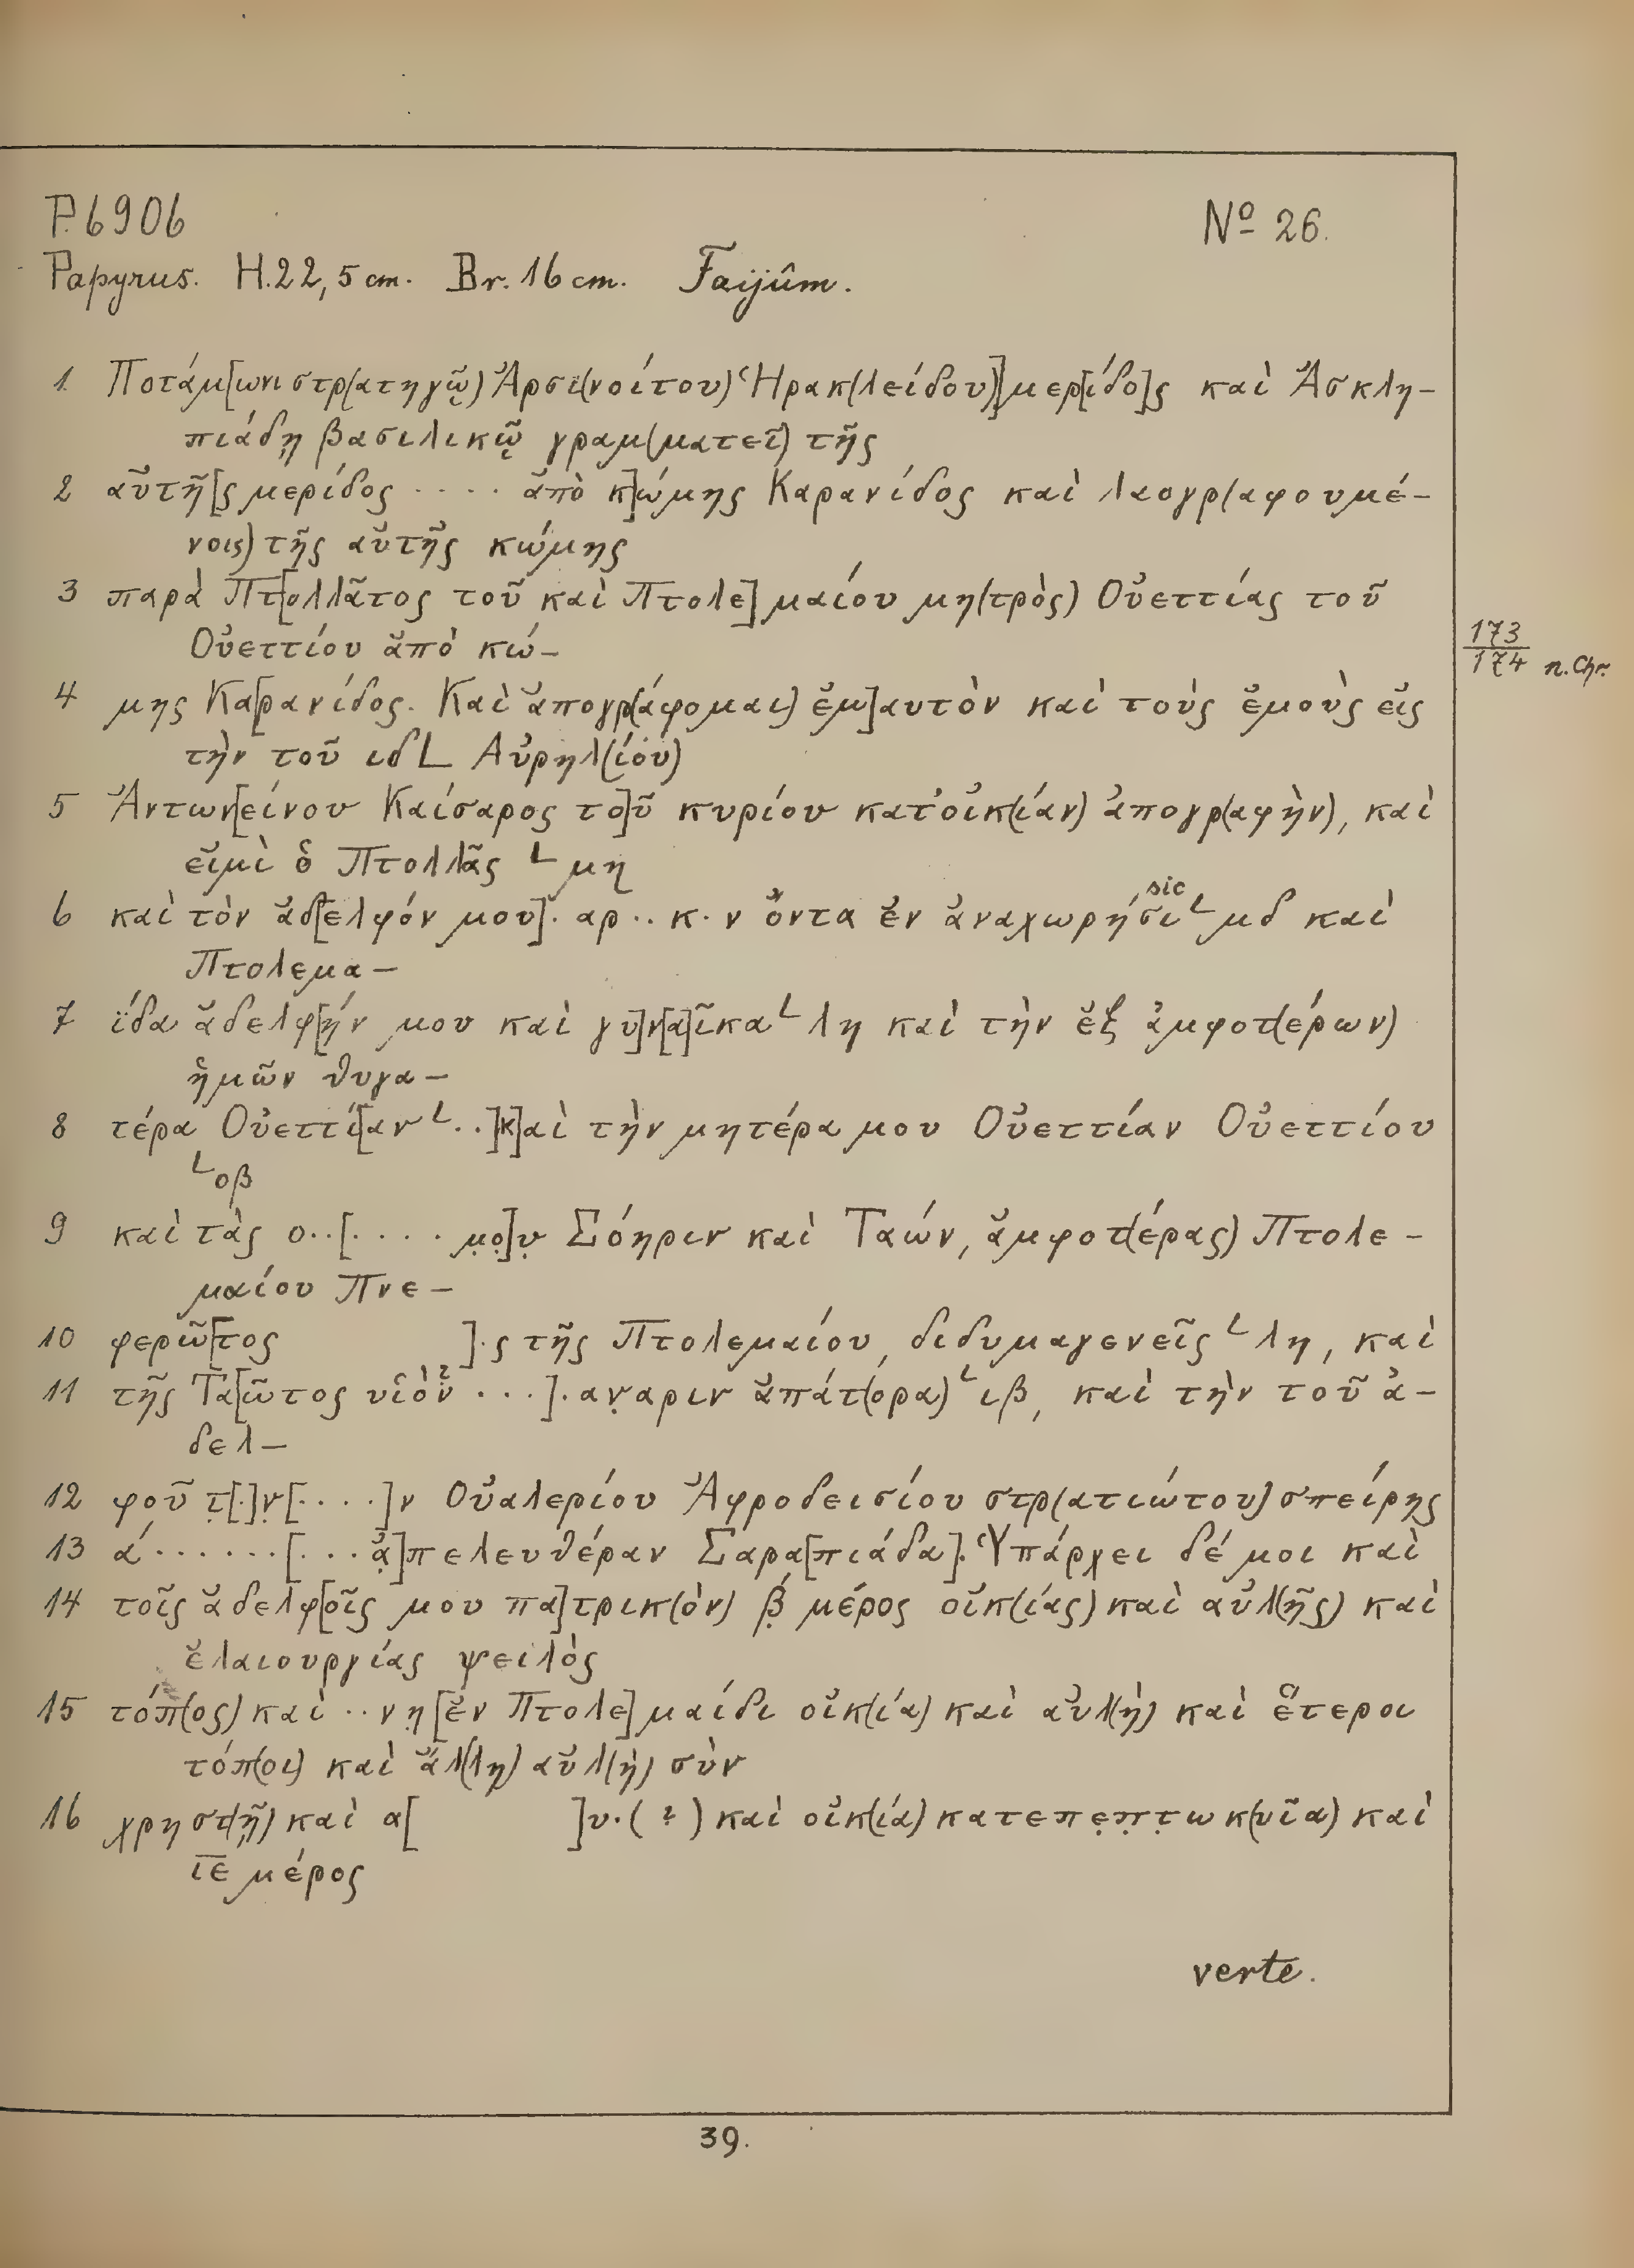 P. 6906
Nº 26.
Papyrus. H. 22,5 cm. Br. 16 cm. Faijûm.
1 Ποτάμ[ωνι στρ(ατηγῷ) Ἀρσι(νοίτου) Ἡρακ(λείδου)] μερ[ίδο]ς καὶ Ἀσκλη-
πιάδῃ βασιλικῷ γραμ(ματεῖ) τῆς
2 αὐτῆ[ς μερίδος .... ἀπὸ κ]ώμης Καρανίδος καὶ λαογρ(αφουμέ-
νοις) τῆς αὐτῆς κώμης
3 παρὰ Πτ[ολλᾶτος τοῦ καὶ Πτολε]μαίου μη(τρὸς) Οὐεττίας τοῦ
Οὐεττίου ἀπὸ κώ-
173/174 n. Chr.
4 μης Κα[ρανίδος. Καὶ ἀπογρ(άφομαι) ἐμ]αυτὸν καὶ τοὺς ἐμοὺς εἰς
τὴν τοῦ ιδ L Αὐρηλ(ίου)
5 Ἀντων[είνου Καίσαρος το]ῦ κυρίου κατ' οἰκ(ίαν) ἀπογρ(αφὴν), καὶ
εἰμὶ ὁ Πτολλᾶς L μη
6 καὶ τὸν ἀδ[ελφόν μου]. αρ..κ.ν ὄντα ἐν ἀναχωρήσι L μδ καὶ
sic
Πτολεμα-
7 ίδα ἀδελφ[ήν μου καὶ γυ]ν[α]ῖκα L λη καὶ τὴν ἐξ ἀμφοτ(έρων)
ἡμῶν θυγα-
8 τέρα Οὐεττί[αν L ..] [κ]αὶ τὴν μητέρα μου Οὐεττίαν Οὐεττίου
L οβ
9 καὶ τὰς ο..[.... μ̣ο̣]υ̣ Σόηριν καὶ Ταών, ἀμφοτ(έρας) Πτολε-
μαίου Πνε-
10 φερῶ[τος ].ς τῆς Πτολεμαίου, διδυμαγενεῖς L λη, καὶ
11 τῆς Τα[ῶτος υἱὸν? ...].αν̣αριν ἀπάτ(ορα) L ιβ, καὶ τὴν τοῦ ἀ-
δελ-
12 φοῦ τ̣[.]ν̣[....]ν Οὐαλερίου Ἀφροδεισίου στρ(ατιώτου) σπείρης
13 α´......[...ἀ̣]πελευθέραν Σαρα[πιάδα]. Ὑπάρχει δέ μοι καὶ
14 τοῖς ἀδελφ[οῖς μου πα]τρικ(ὸν) β̣´ μέρος οἰκ(ίας) καὶ αὐλ(ῆς) καὶ
ἐλαιουργίας ψειλὸς
15 τόπ(ος) καὶ ..νη̣ [ἐν Πτολε]μαίδι οἰκ(ία) καὶ αὐλ(ὴ) καὶ ἕτεροι
τόπ(οι) καὶ ἄλ(λη) αὐλ(ὴ) σὺν
16 χρηστ(ῇ) καὶ α[ ]υ.( ? ) καὶ οἰκ(ία) κατεπε̣π̣τ̣ωκ(υῖα) καὶ
ι̅ε̅ μέρος
verte.
39.